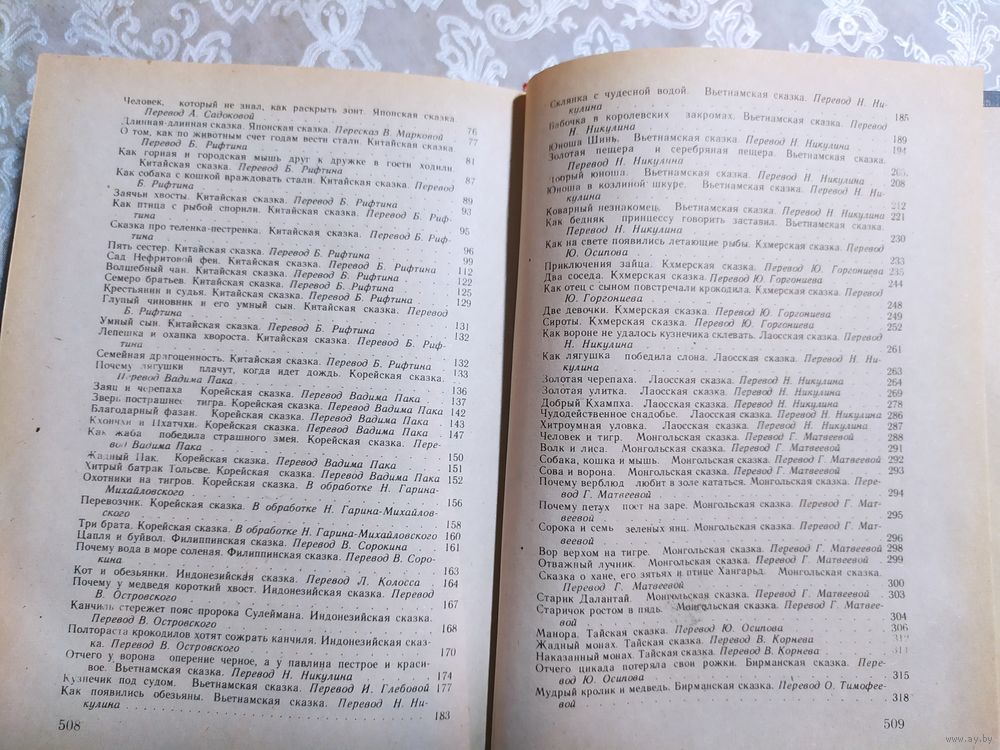 Человек, который не знал, как раскрыть зонт. Японская сказка.
Перевод А. Садоковой 76
Длинная-длинная сказка. Японская сказка. Пересказ В. Марковой 77
О том, как по животным счет годам вести стали. Китайская сказка.
Перевод Б. Рифтина 81
Как горная и городская мышь друг к дружке в гости ходили.
Китайская сказка. Перевод Б. Рифтина 87
Как собака с кошкой враждовать стали. Китайская сказка. Перевод
Б. Рифтина 89
Заячьи хвосты. Китайская сказка. Перевод Б. Рифтина 93
Как птица с рыбой спорили. Китайская сказка. Перевод Б. Риф-
тина 95
Сказка про теленка-пестренка. Китайская сказка. Перевод Б. Риф-
тина 96
Пять сестер. Китайская сказка. Перевод Б. Рифтина 99
Сад Нефритовой феи. Китайская сказка. Перевод Б. Рифтина 112
Волшебный чан. Китайская сказка. Перевод Б. Рифтина 122
Семеро братьев. Китайская сказка. Перевод Б. Рифтина 125
Крестьянин и судья. Китайская сказка. Перевод Б. Рифтина 129
Глупый чиновник и его умный сын. Китайская сказка. Перевод
Б. Рифтина 131
Умный сын. Китайская сказка. Перевод Б. Рифтина 132
Лепешка и охапка хвороста. Китайская сказка. Перевод Б. Риф-
тина 132
Семейная драгоценность. Китайская сказка. Перевод Б. Рифтина 133
Почему лягушки плачут, когда идет дождь. Корейская сказка.
Перевод Вадима Пака 136
Заяц и черепаха Корейская сказка. Перевод Вадима Пака 137
Зверь пострашнее тигра. Корейская сказка. Перевод Вадима Пака 142
Благодарный фазан. Корейская сказка. Перевод Вадима Пака 143
Кхончхи и Пхатчхи. Корейская сказка. Перевод Вадима Пака 147
Как жаба победила страшного змея. Корейская сказка. Пере-
вод Вадима Пака 150
Жадный Пак. Корейская сказка. Перевод Вадима Пака 151
Хитрый батрак Тольсве. Корейская сказка. Перевод Вадима Пака 152
Охотники на тигров. Корейская сказка. В обработке Н. Гарина-
Михайловского 156
Перевозчик. Корейская сказка. В обработке Н. Гарина-Михайлов-
ского 158
Три брата. Корейская сказка. В обработке Н. Гарина-Михайловского 160
Цапля и буйвол. Филиппинская сказка. Перевод В. Сорокина 161
Почему вода в море соленая. Филиппинская сказка. Перевод В. Соро-
кина 163
Кот и обезьянки. Индонезийская сказка. Перевод Л. Колосса 164
Почему у медведя короткий хвост. Индонезийская сказка. Перевод
В. Островского 167
Канчиль стережет пояс пророка Сулеймана. Индонезийская сказка.
Перевод В. Островского 168
Полтораста крокодилов хотят сожрать канчиля. Индонезийская сказ-
ка. Перевод В. Островского 170
Отчего у ворона оперение черное, а у павлина пестрое и краси-
вое. Вьетнамская сказка. Перевод Н. Никулина 174
Кузнечик под судом. Вьетнамская сказка. Перевод И. Глебовой 177
Как появились обезьяны. Вьетнамская сказка. Перевод Н. Ни-
кулина 183
508
Склянка с чудесной водой. Вьетнамская сказка. Перевод Н. Ни-
кулина 185
Бабочка в королевских закромах. Вьетнамская сказка. Перевод
Н. Никулина 189
Юноша Шинь. Вьетнамская сказка. Перевод Н. Никулина 194
Золотая пещера и серебряная пещера. Вьетнамская сказка.
Перевод Н. Никулина 205
Добрый юноша. Вьетнамская сказка. Перевод Н. Никулина 208
Юноша в козлиной шкуре. Вьетнамская сказка. Перевод Н. Ни-
кулина 212
Коварный незнакомец. Вьетнамская сказка. Перевод Н. Никулина 221
Как бедняк принцессу говорить заставил. Вьетнамская сказка.
Перевод Н. Никулина 230
Как на свете появились летающие рыбы. Кхмерская сказка. Перевод
Ю. Осипова 233
Приключения зайца. Кхмерская сказка. Перевод Ю. Горгониева 235
Два соседа. Кхмерская сказка. Перевод Ю. Горгониева 244
Как отец с сыном повстречали крокодила. Кхмерская сказка. Перевод
Ю. Горгониева 248
Две девочки. Кхмерская сказка. Перевод Ю. Горгониева 249
Сироты. Кхмерская сказка. Перевод Ю. Горгониева 252
Как вороне не удалось кузнечика склевать. Лаосская сказка. Перевод
Н. Никулина 261
Как лягушка победила слона. Лаосская сказка. Перевод Н. Ни-
кулина 263
Золотая черепаха. Лаосская сказка. Перевод Н. Никулина 264
Золотая улитка. Лаосская сказка. Перевод Н. Никулина 269
Добрый Кхампха. Лаосская сказка. Перевод Н. Никулина 278
Чудодейственное снадобье. Лаосская сказка. Перевод Н. Никулина 286
Хитроумная уловка. Лаосская сказка. Перевод Н. Никулина 287
Человек и тигр. Монгольская сказка. Перевод Г. Матвеевой 288
Волк и лиса. Монгольская сказка. Перевод Г. Матвеевой 291
Собака, кошка и мышь. Монгольская сказка. Перевод Г. Матвеевой 292
Сова и ворона. Монгольская сказка. Перевод Г. Матвеевой 293
Почему верблюд любит в золе кататься. Монгольская сказка. Пере-
вод Г. Матвеевой 294
Почему петух поет на заре. Монгольская сказка. Перевод Г. Мат-
веевой 295
Сорока и семь зеленых яиц. Монгольская сказка. Перевод Г. Мат-
веевой 296
Вор верхом на тигре. Монгольская сказка. Перевод Г. Матвеевой 298
Отважный лучник. Монгольская сказка. Перевод Г. Матвеевой 299
Сказка о хане, его зятьях и птице Хангарьд. Монгольская сказка.
Перевод Г. Матвеевой 300
Старик Далантай. Монгольская сказка. Перевод Г. Матвеевой 303
Старичок ростом в пядь. Монгольская сказка. Перевод Г. Матвее-
вой 304
Манора. Тайская сказка. Перевод Ю. Осипова 306
Жадный монах. Тайская сказка. Перевод В. Корнева
Наказанный монах. Тайская сказка. Перевод В. Корнева
Отчего цикада потеряла свои рожки. Бирманская сказка. Пере-
вод Ю. Осипова 315
Мудрый кролик и медведь. Бирманская сказка. Перевод О. Тимофее-
вой 318
509
www.ay.by